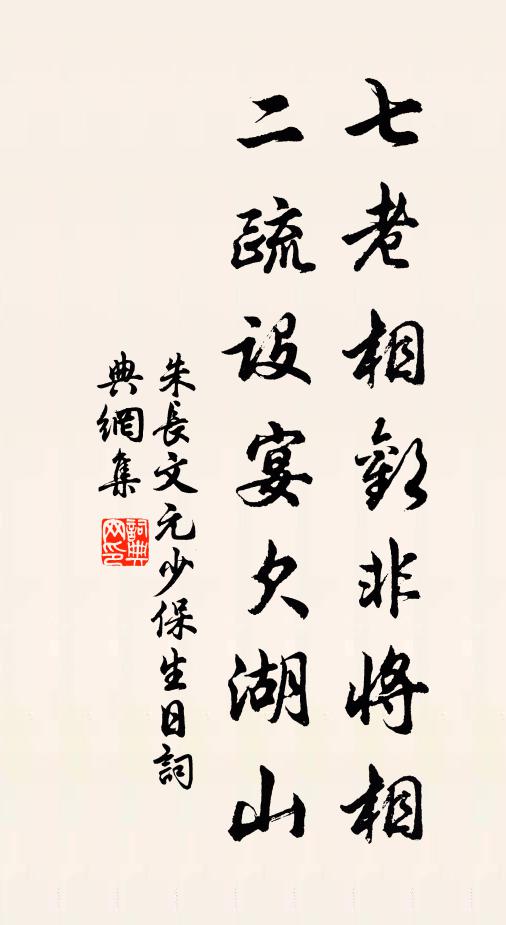 七老相歡非將相
二疏設宴欠湖山
朱長文元少保生日詞
典網集
詞典网印